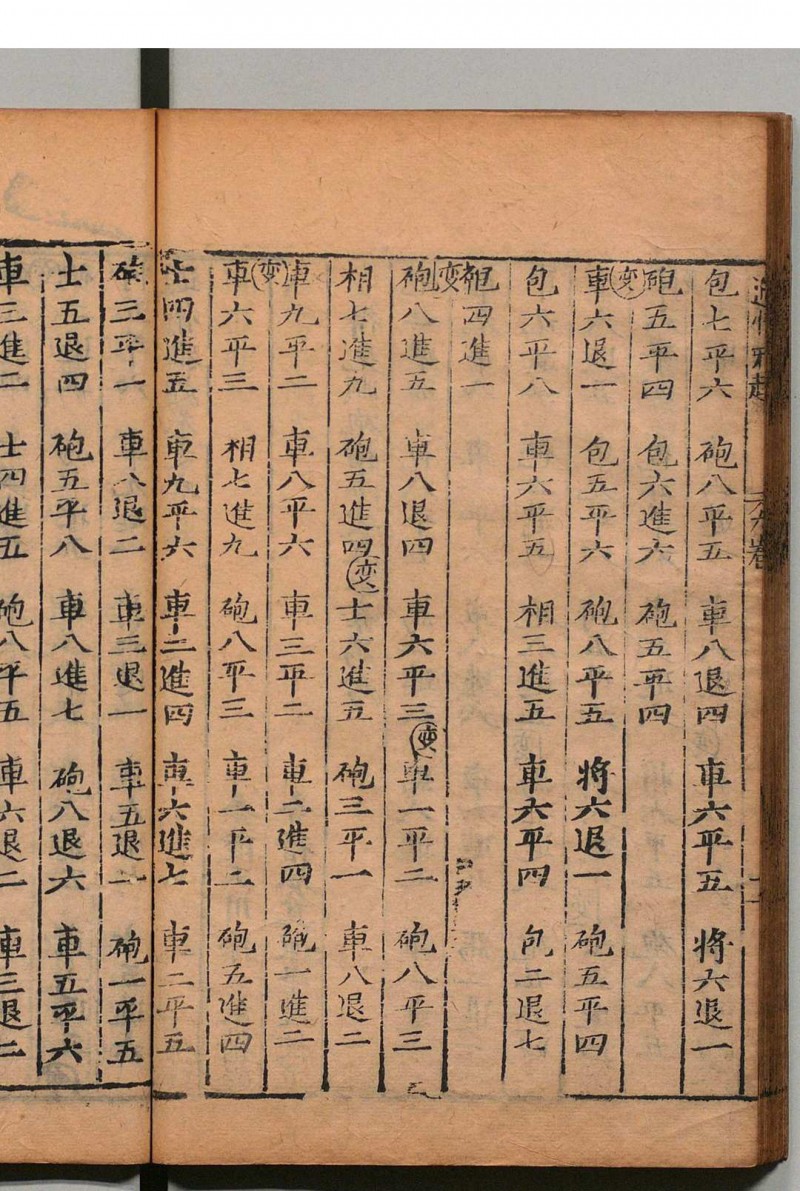 六卷
包七平六 砲八平五 車八退四 車六平五 將六退一
砲五平四 包六進六 砲五平四
變
車六退一 包五平六 砲八平五 將六退一 砲五平四
包六平八 車六平五 相三進五 車六平四 包二退七
四進一
變
砲八進五 車八退四 車六平三 變 車一平二 砲八平三
相七進九 砲五進四 變 士六進五 砲三平一 車八退二
車九平二 車八平六 車三平二 車二進四 砲一進二
變
車六平三 相七進九 砲八平三 車一平二 砲五進四
士四進五 車九平六 車二進四 車六進七 車二平五
砲三平一 車八退二 車三退一 車五退二 砲一平五
士五退四 砲五平八 車八進七 砲八退六 車五平六
車三進二 士四進五 砲八平五 車六退二 車三退二